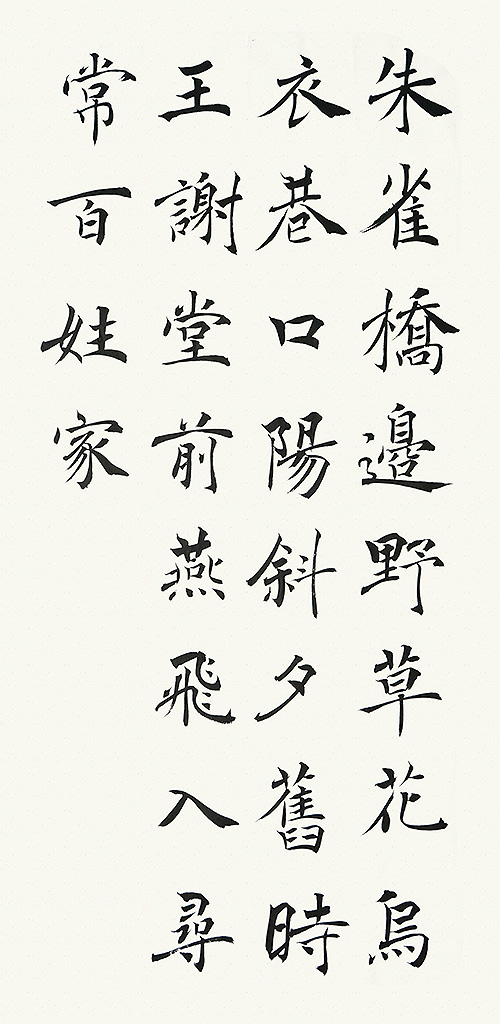 朱雀橋邊野草花烏
衣巷口陽斜夕舊時
王謝堂前燕飛入尋
常百姓家